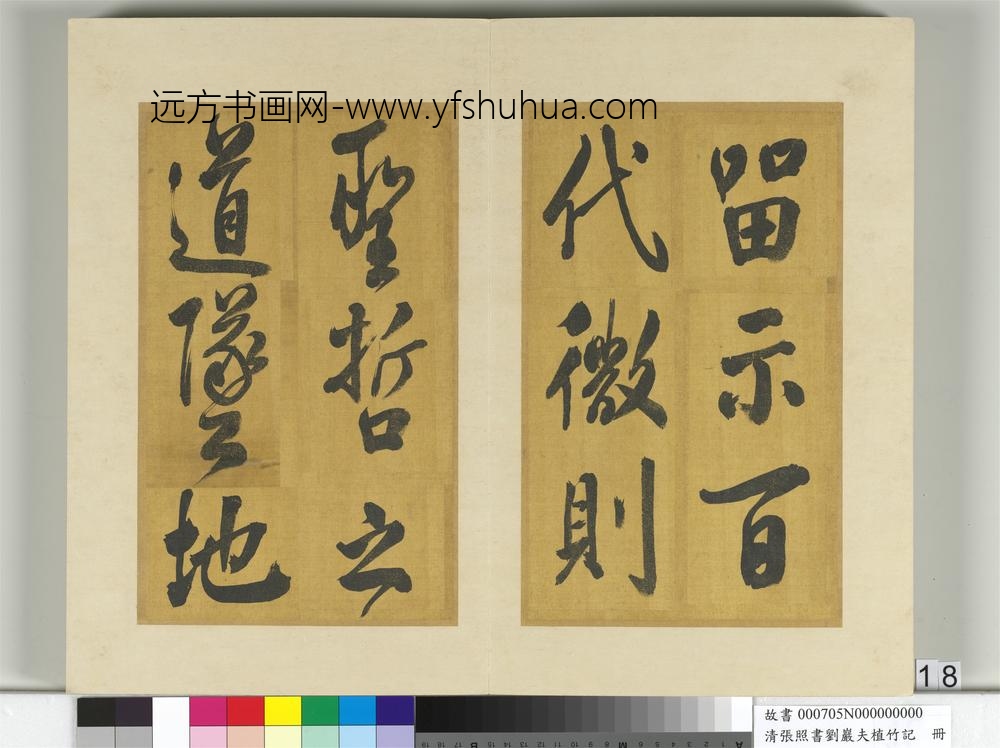 远方书画网-www.yfshuhua.com
留示百
代微則
聖哲之
道墜地
18
故書 000705N000000000
清張照書劉巖夫植竹記 冊